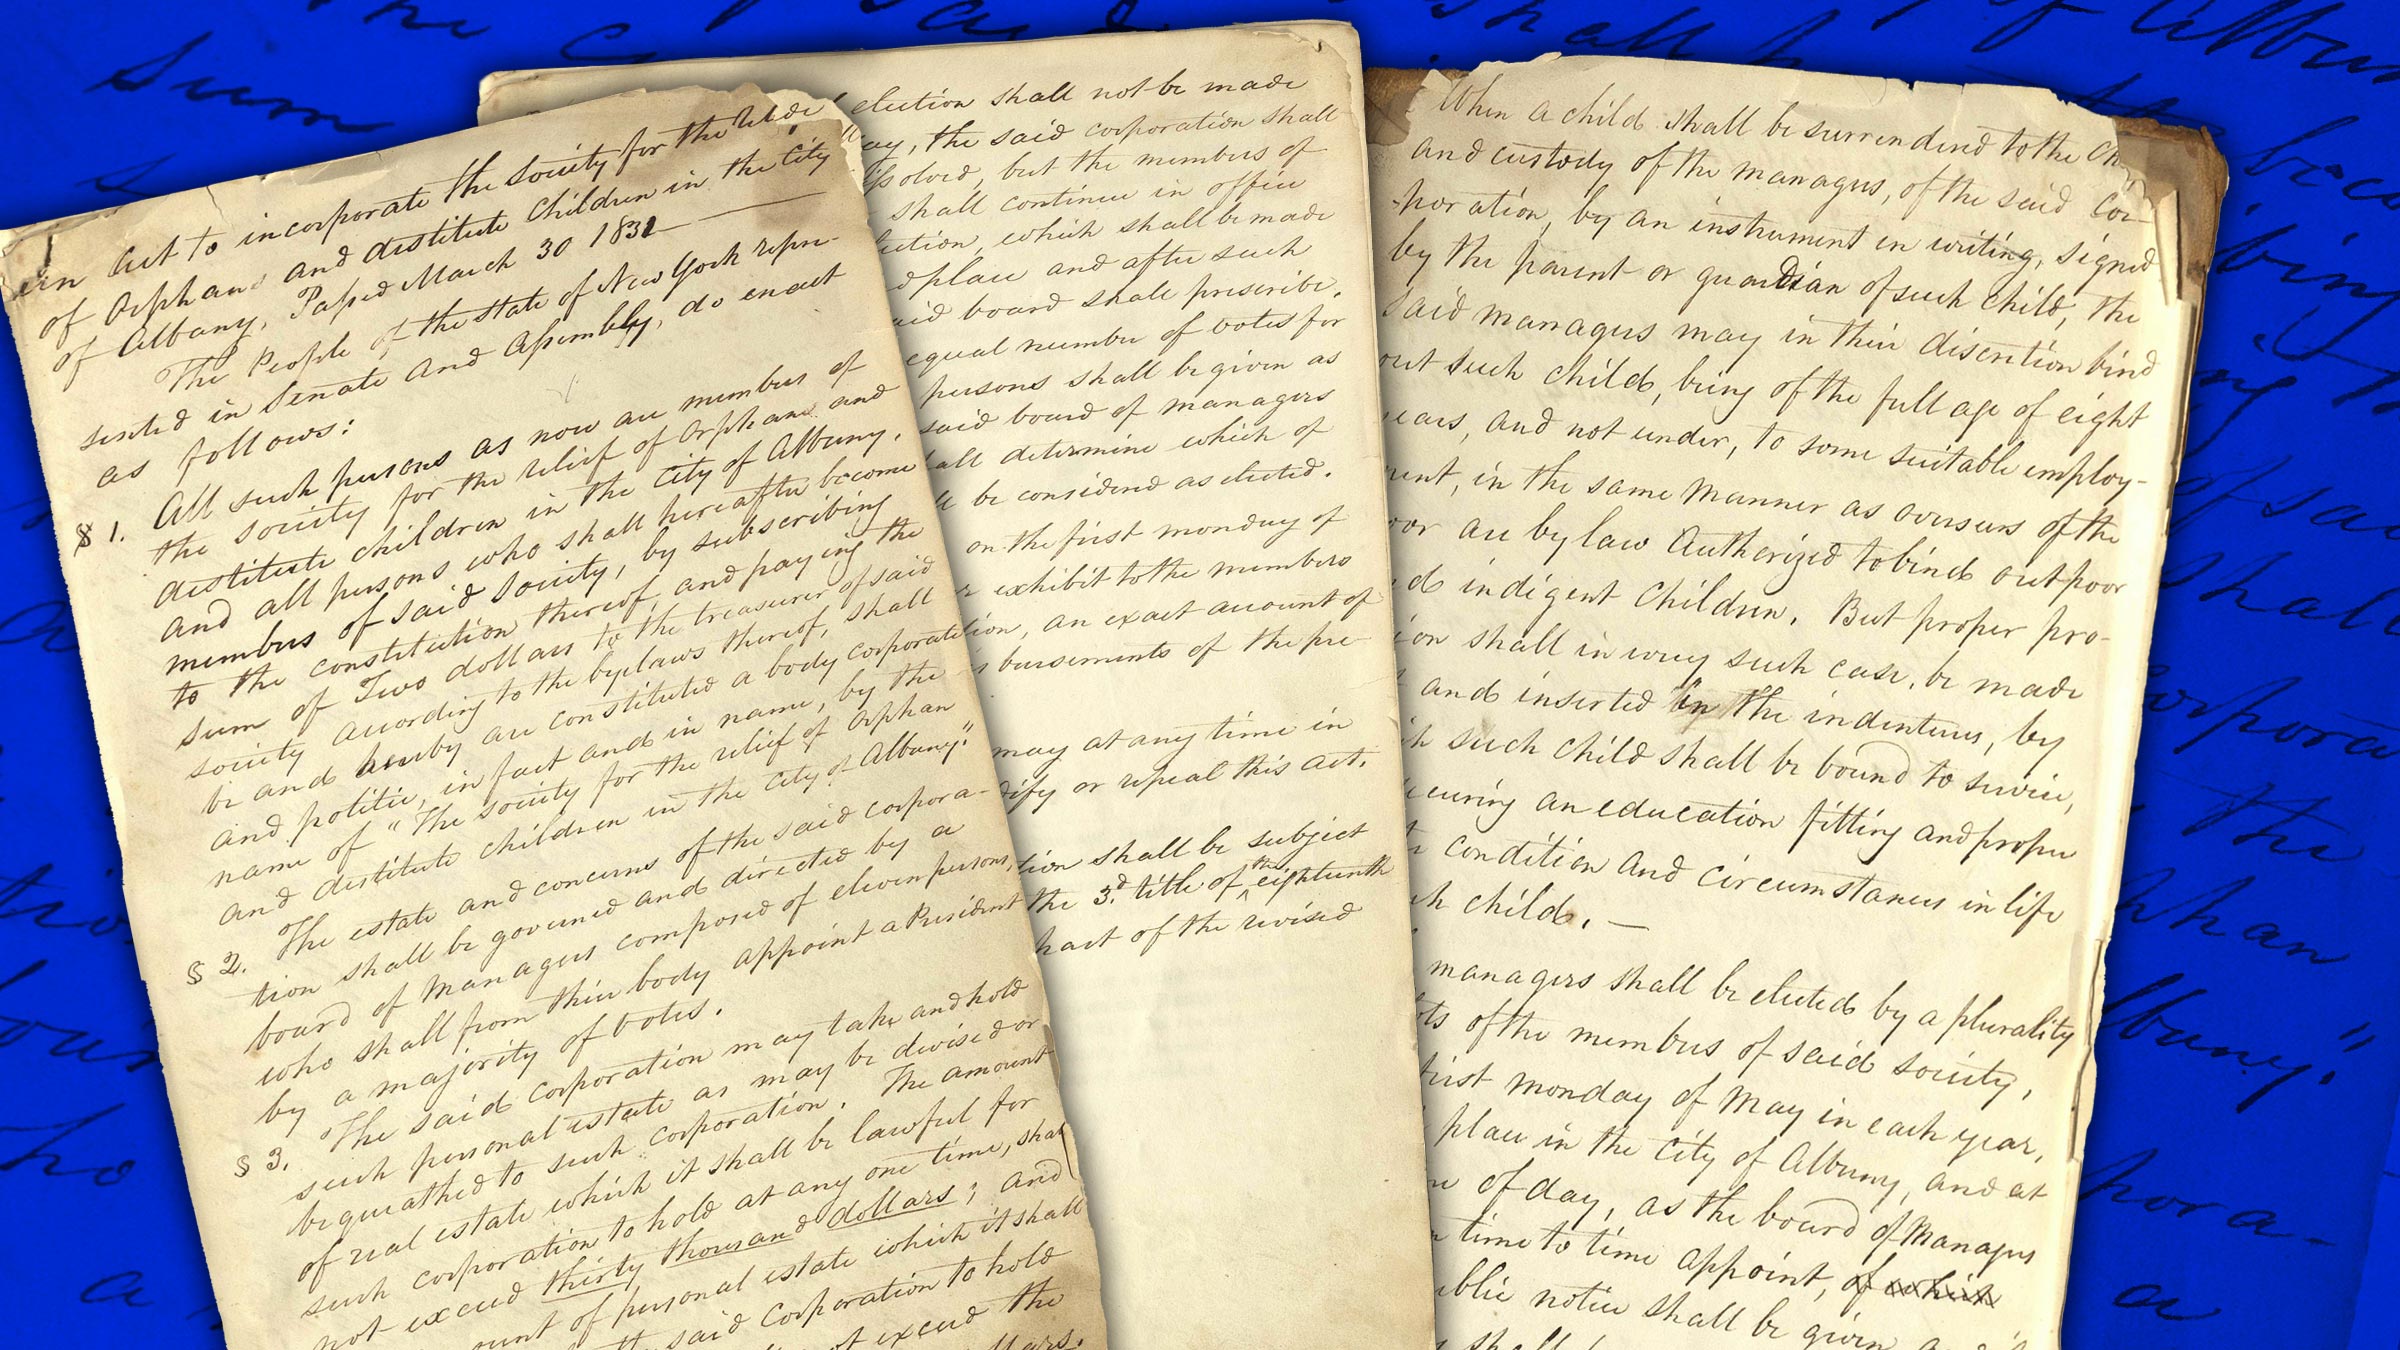 An Act to incorporate the Society for the relief
of Orphans and destitute Children in the City
of Albany, Passed March 30 1831
The People of the State of New York repre-
sented in Senate and Assembly, do enact
as follows:
§ 1. All such persons as now are members of
the society for the relief of orphans and
destitute children in the City of Albany,
and all persons who shall hereafter become
members of said Society, by subscribing
to the constitution thereof and paying the
sum of Two dollars to the treasurer of said
society according to the bylaws thereof, shall
be and hereby are constituted a body corporate
and politic, in fact and in name, by the
name of "The society for the relief of Orphan
and destitute children in the City of Albany."
§ 2. The estate and concerns of the said corpora-
tion shall be governed and directed by a
board of managers composed of eleven persons,
who shall from their body appoint a President
by a majority of votes.
§ 3. The said corporation may take and hold
such personal estate as may be devised or
bequeathed to such corporation. The amount
of real estate which it shall be lawful for
such corporation to hold at any one time, shall
not exceed thirty thousand dollars; and
amount of personal estate which it shall
said corporation to hold
not exceed the
election shall not be made
day, the said corporation shall
dissolved, but the members of
shall continue in office
election, which shall be made
and place and after such
said board shall prescribe.
equal number of votes for
persons shall be given as
said board of managers
shall determine which of
be considered as elected.
on the first monday of
exhibit to the members
an exact account of
disbursements of the pre-
may at any time in
modify or repeal this act.
shall be subject
the 3d. title of the eighteenth
part of the revised
When a child shall be surrendered to the
and custody of the managers, of the said Cor-
-poration, by an instrument in writing, signed
by the parent or guardian of such child, the
said managers may in their discretion bind
out such child, being of the full age of eight
years, and not under, to some suitable employ-
ment, in the same manner as overseers of the
poor are by law authorized to bind out poor
and indigent children. But proper pro-
shall in every such case, be made
and inserted in the indentures, by
such child shall be bound to service,
securing an education fitting and proper
condition and circumstances in life
child. —
managers shall be elected by a plurality
of the members of said society,
first monday of May in each year,
place in the City of Albany, and at
of day, as the board of managers
time to time appoint, of which
public notice shall be given